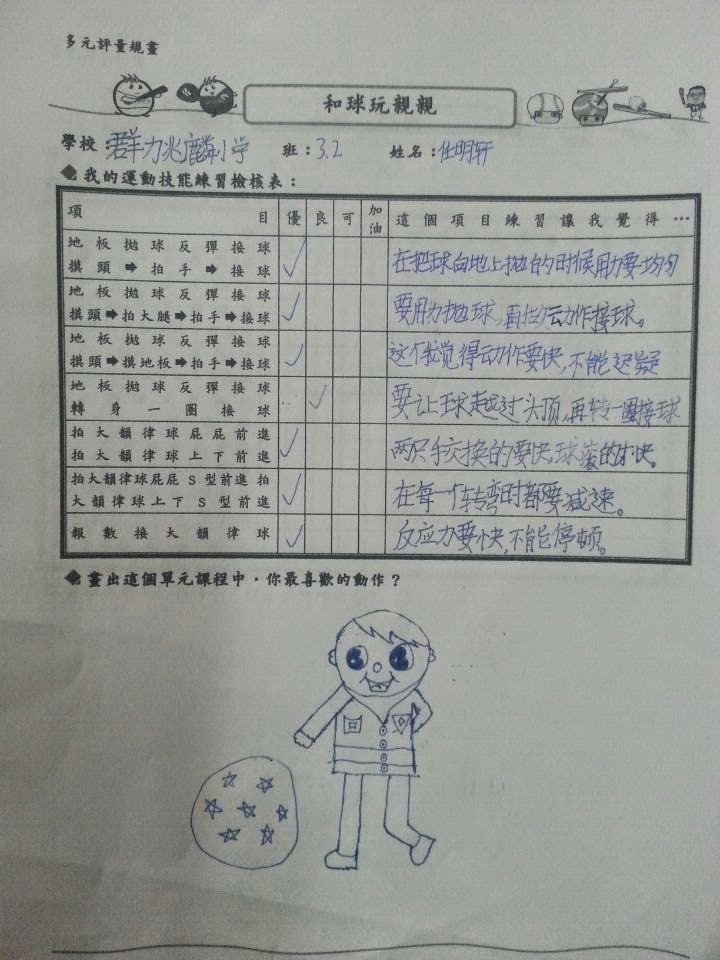 多元評量規畫
和球玩親親
學校：群力兆麟小学 班：3.2 姓名：任明轩
◆我的運動技能練習檢核表：
項目 優 良 可 加油 這個項目練習讓我覺得…
地板拋球反彈接球
摸頭➡拍手➡接球 ✓ 在把球向地上抛的时候用力要均匀
地板拋球反彈接球
摸頭➡拍大腿➡拍手➡接球 ✓ 要用力抛球,再做动作接球。
地板拋球反彈接球
摸頭➡摸地板➡拍手➡接球 ✓ 这个我觉得动作要快,不能迟疑
地板拋球反彈接球
轉身一圈接球 ✓ 要让球越过头顶,再转一圈接球
拍大韻律球屁屁前進
拍大韻律球上下前進 ✓ 两只手交换的要快,球滚的才快。
拍大韻律球屁屁S型前進拍
大韻律球上下S型前進 ✓ 在每一个转弯时都要减速。
報數接大韻律球 ✓ 反应力要快,不能停顿。
◆畫出這個單元課程中，你最喜歡的動作？